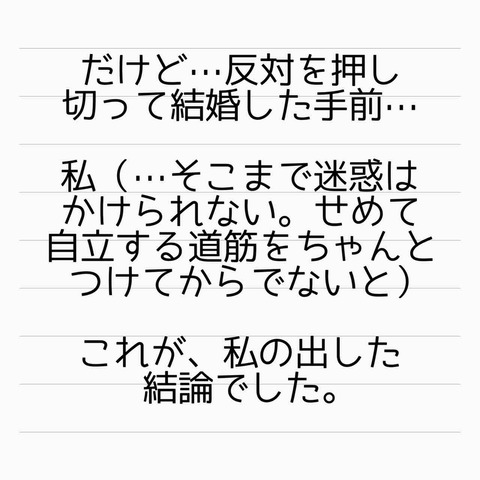 だけど…反対を押し
切って結婚した手前…
私（…そこまで迷惑は
かけられない。せめて
自立する道筋をちゃんと
つけてからでないと）
これが、私の出した
結論でした。